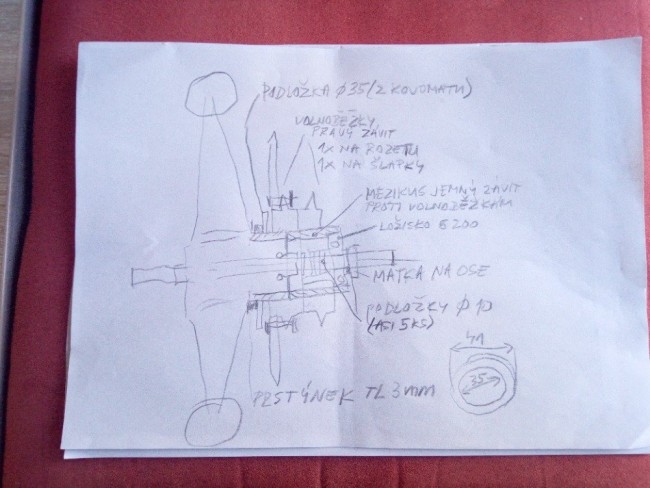 PODLOŽKA Ø35 (Z KOVOMATU)
VOLNOBĚŽKY
PRAVÝ ZÁVIT
1X NA ROZETU
1X NA ŠLAPKY
MEZIKUS JEMNÝ ZÁVIT
PROTI VOLNOBĚŽKÁM
LOŽISKO 6200
MATKA NA OSE
PODLOŽKY Ø 10
(ASI 5KS)
41
35
PRSTÝNEK TL 3mm